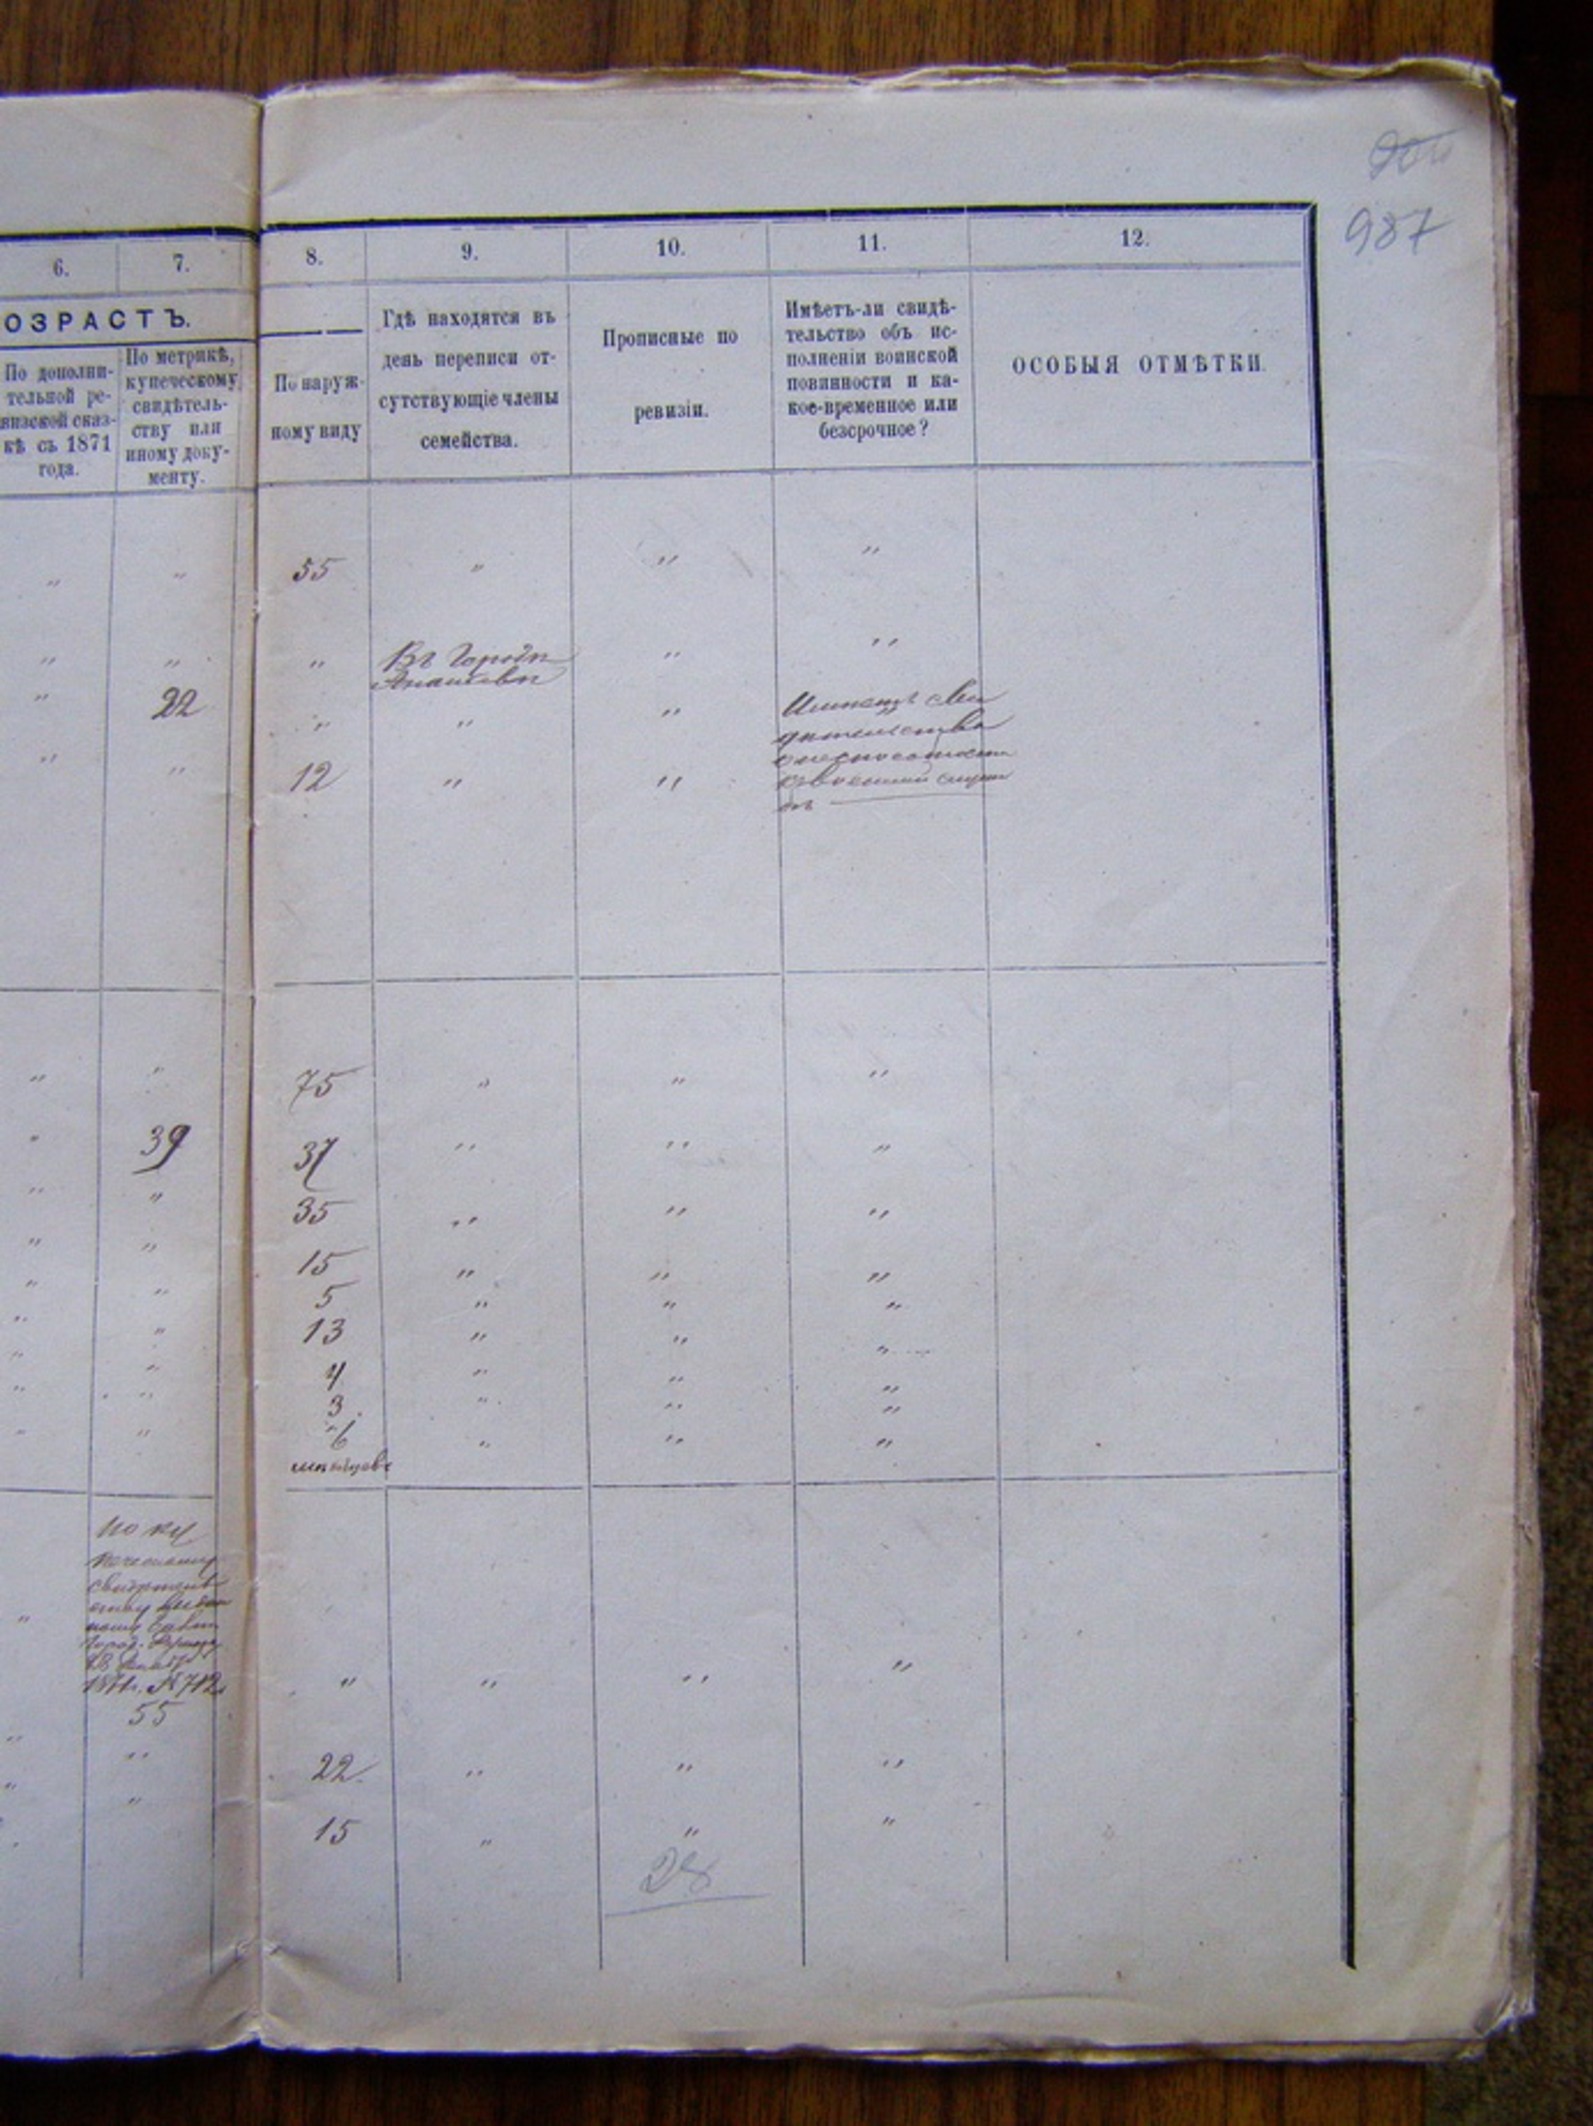 987
6. 7. 8. 9. 10. 11. 12.
ОЗРАСТЪ.
По дополни-
тельной ре-
визской сказ-
кѣ съ 1871
года.
По метрикѣ,
купеческому
свидѣтель-
ству или
иному доку-
менту.
По наруж-
ному виду
Гдѣ находятся въ
день переписи от-
сутствующіе члены
семейства.
Прописные по
ревизіи.
Имѣетъ-ли свидѣ-
тельство объ ис-
полненіи воинской
повинности и ка-
кое-временное или
безсрочное?
ОСОБЫЯ ОТМѢТКИ.
" " 55 " " "
" " " Въ Городѣ " "
Ананьевѣ
" 22 " " " Имѣетъ сви
дѣтельство
о неспособности
" " 12 " " къ военной служ
бѣ
" " 75 " " "
" 39 37 " " "
" " 35 " " "
" " 15 " " "
" " 5 " " "
" " 13 " " "
" " 4 " " "
" " 3 " " "
" " 6 " " "
мѣсяцовъ
по ку
печескому
свидѣтель
ству выдан
Город.
1871г. № 712
55
" " " "
" " 22 " " "
" " 15 " " "
28